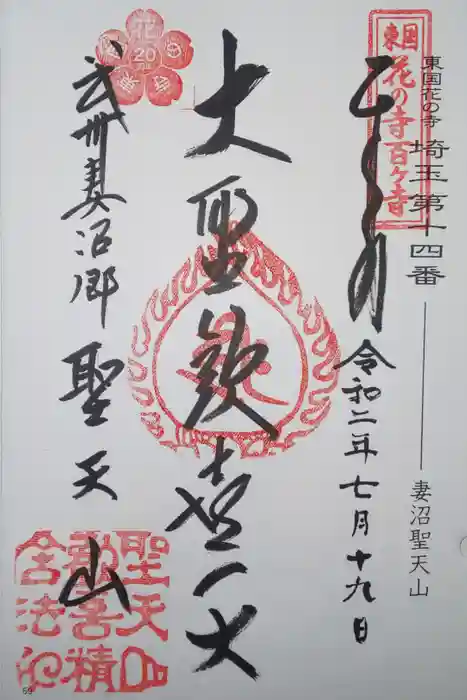 東国花の寺 埼玉第十四番
妻沼聖天山
東国
花の寺百ヶ寺
令和二年七月十九日
大聖歓喜天
武州妻沼郷 聖天山
花
20
聖天山
歓喜精
舎法印
69